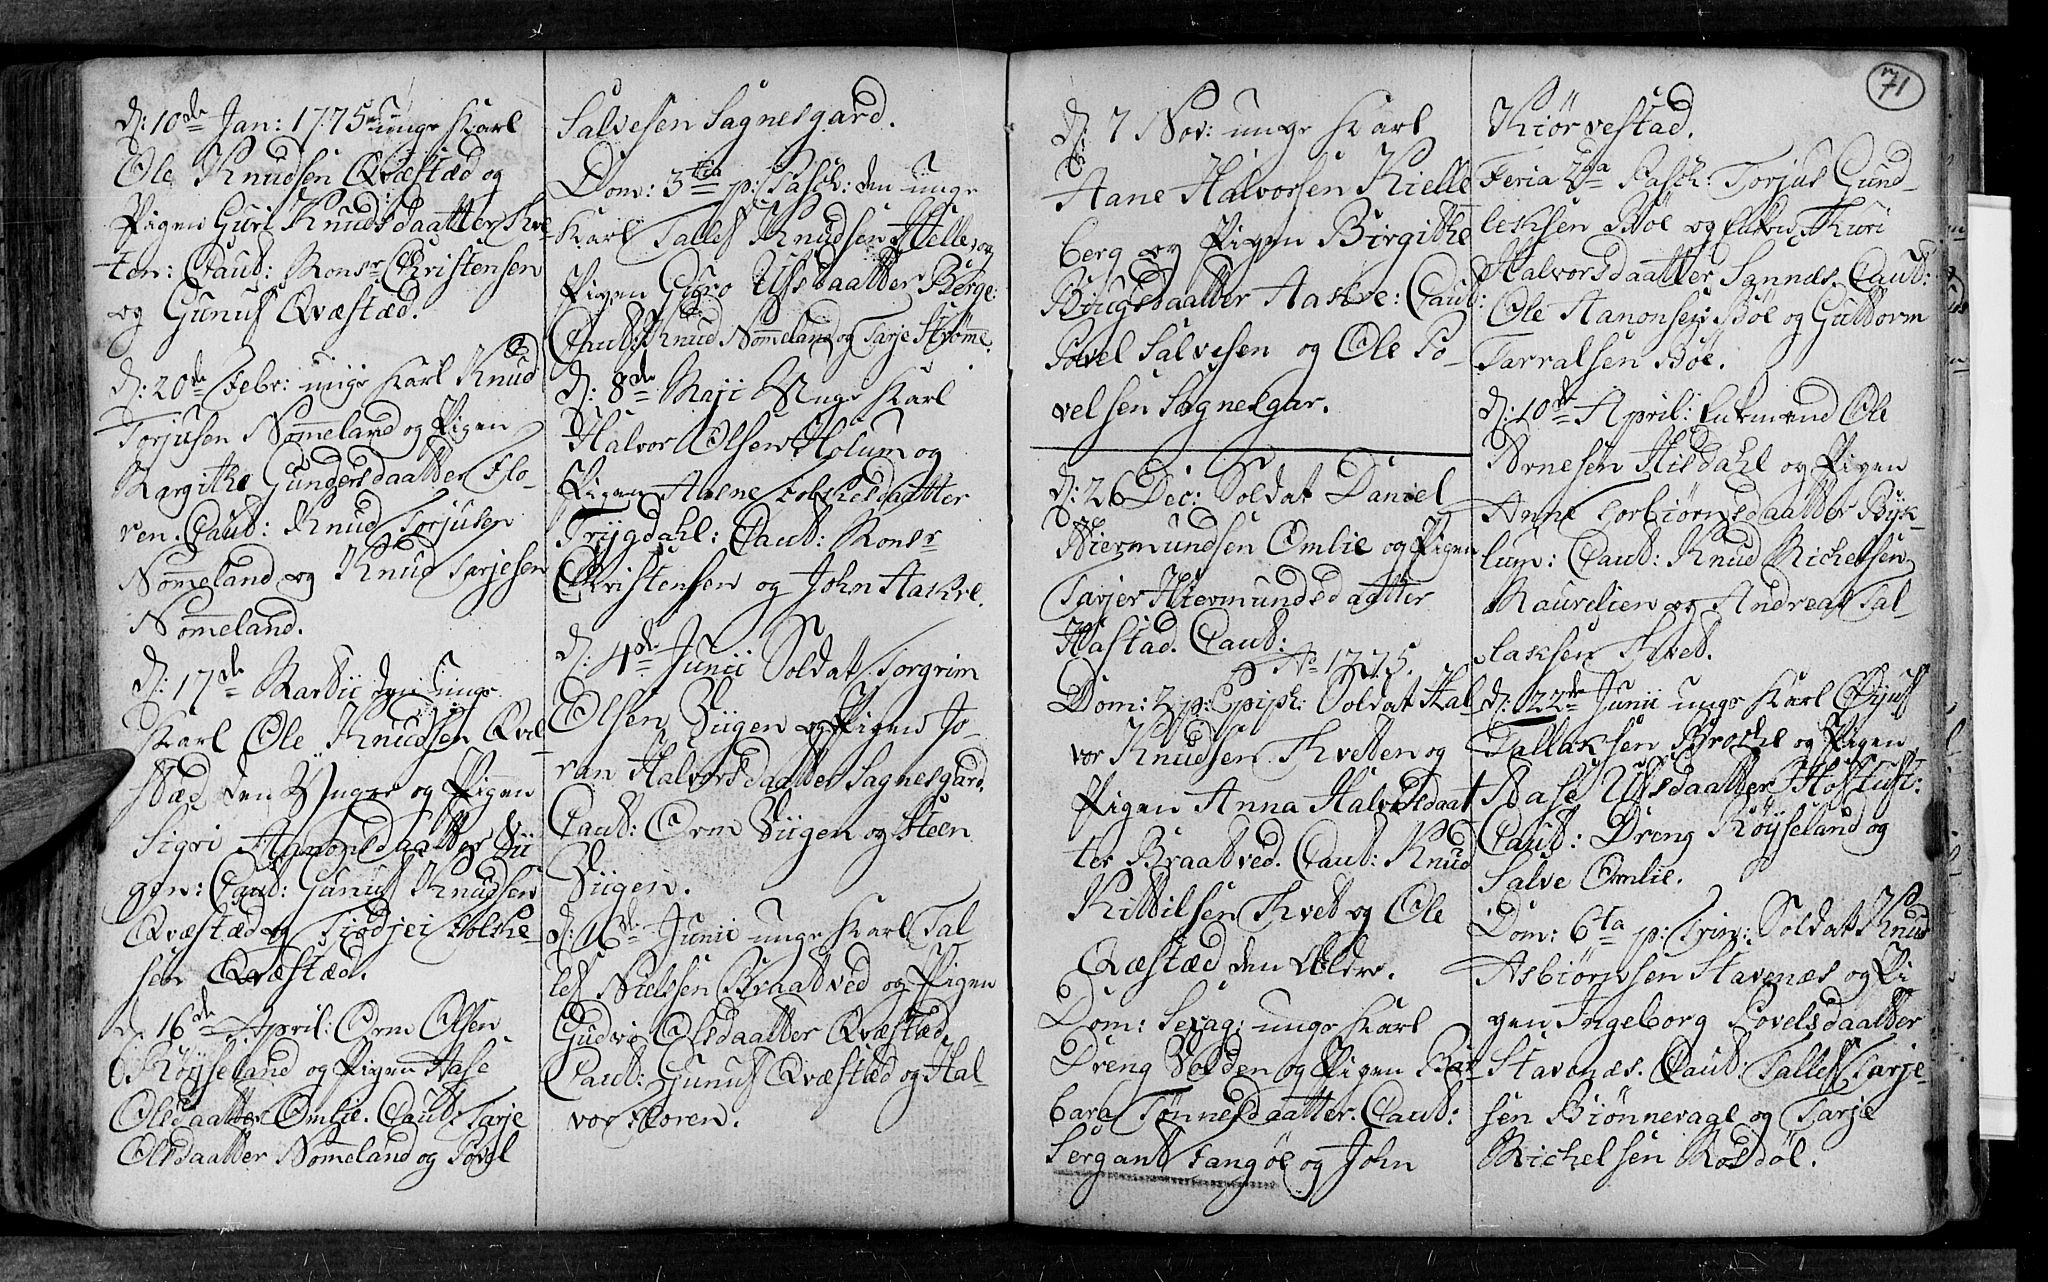 d: 10de Jan: 1775 unge Karl
Ole Knudsen Qvæstæd og
Pigen Guri Knudsdaatter Kve-
ten: Caut: Monsr Christensen
og Gunuf Qvæstæd.
d: 20de Febr: unge Karl Knud
Torjusen Nomeland og Pigen
Margithe Gundersdaatter Flo-
ren. Caut: Knud Torjusen
Nomeland og Knud Tarjesen
Nomeland.
d: 17de Martii den unge
Karl Ole Knudsen Qvæ-
stæd den Yngre og Pigen
Sigri Aanonsdaatter Vii
gen: Caut: Gunuf Knudsen
Qvæstæd og Tiodjei Folke-
sen Qvæstæd.
d: 16de April: Orm Olsen
Røyseland og Pigen Aase
Olsdaatter Omlie. Caut: Tarje
Olsdaatter Nomeland og Povel
Salvesen Sagnesgard.
Dom: 3tia p: Pasch: den unge
Karl Tallef Knudsen Helle og
Pigen Guro Ulfsdaatter Berge:
Caut: Knud Nomeland og Tarje Strømme.
d: 8de Maji Unge Karl
Halvor Olsen Holum og
Pigen Aasne Folkesdaatter
Trygdahl: Caut: Monsr
Christensen og John Aakre.
d: 4de Junii Soldat Torgrim
Olsen Viigen og Pigen Jo-
ran Halvorsdaatter Sagnesgard.
Caut: Orm Viigen og Steen
Viigen.
d: 16de Junii unge Karl Tal-
lef Nielsen Braatved og Pigen
Gudvi Olsdaatter Qvæstæd,
Caut: Gunuf Qvæstæd og Hal-
vor Floren.
71
d: 7 Nov: unge Karl
Aane Halvorsen Kielle
berg og Pigen Birgithe
Bougsdaatter Aakre: Caut:
Povel Salvesen og Ole Po-
velsen Sagnesgar.
d: 26 Dec: Soldat Daniel
Hiermundsen Omlie og Pigen
Tarjer Hiermundsdaatter
Hastad. Caut:
Ao 1775.
Dom: 2 p: Epiph: Soldat Hal-
vor Knudsen Kvetten og
Pigen Anna Halvorsdaat
ter Braatved. Caut: Knud
Kittilsen Kvet og Ole
Qvæstæd den Ældre.
Dom: Sexag: unge Karl
Dreng Volden og Pigen Bar-
bara Tønnesdaatter. Caut:
Sergant Fangøe og John
Kiørvestad.
Feria 2da Pasch: Torjus Gund-
leksen Bøe og Enken Thuri
Halvorsdaatter Sannes. Caut:
Ole Aanonsen Bøe og Guttorm
Tarralsen Bøe.
d: 10de April: Enkemand Ole
Arnesen Hisdahl og Pigen
Anne Torbiørnsdaatter Byk-
lum: Caut: Knud Michelsen
Maurelien og Andreas Tal-
laksen Kvet.
d: 22de Junii unge Karl Øyuf
Tallaksen Brokke og Pigen
Aase Ulfsdaatter Hoftuft:
Caut: Dreng Røyseland og
Salve Omlie.
Dom: 6ta p: Trin: Soldat Knud
Asbiørnsen Stavenæs og Pi
gen Ingeborg Povelsdaatter
Stavenæs. Caut: Tallef Tarje-
sen Biønnevagl og Tarje
Michelsen Rosdøl.